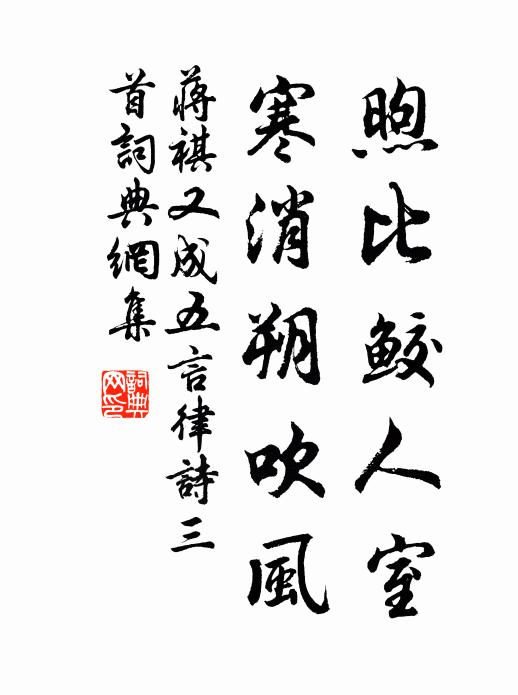 煦比鮫人室
寒消朔吹風
蔣祺又成五言律詩三
首詞典網集
詞典
网印